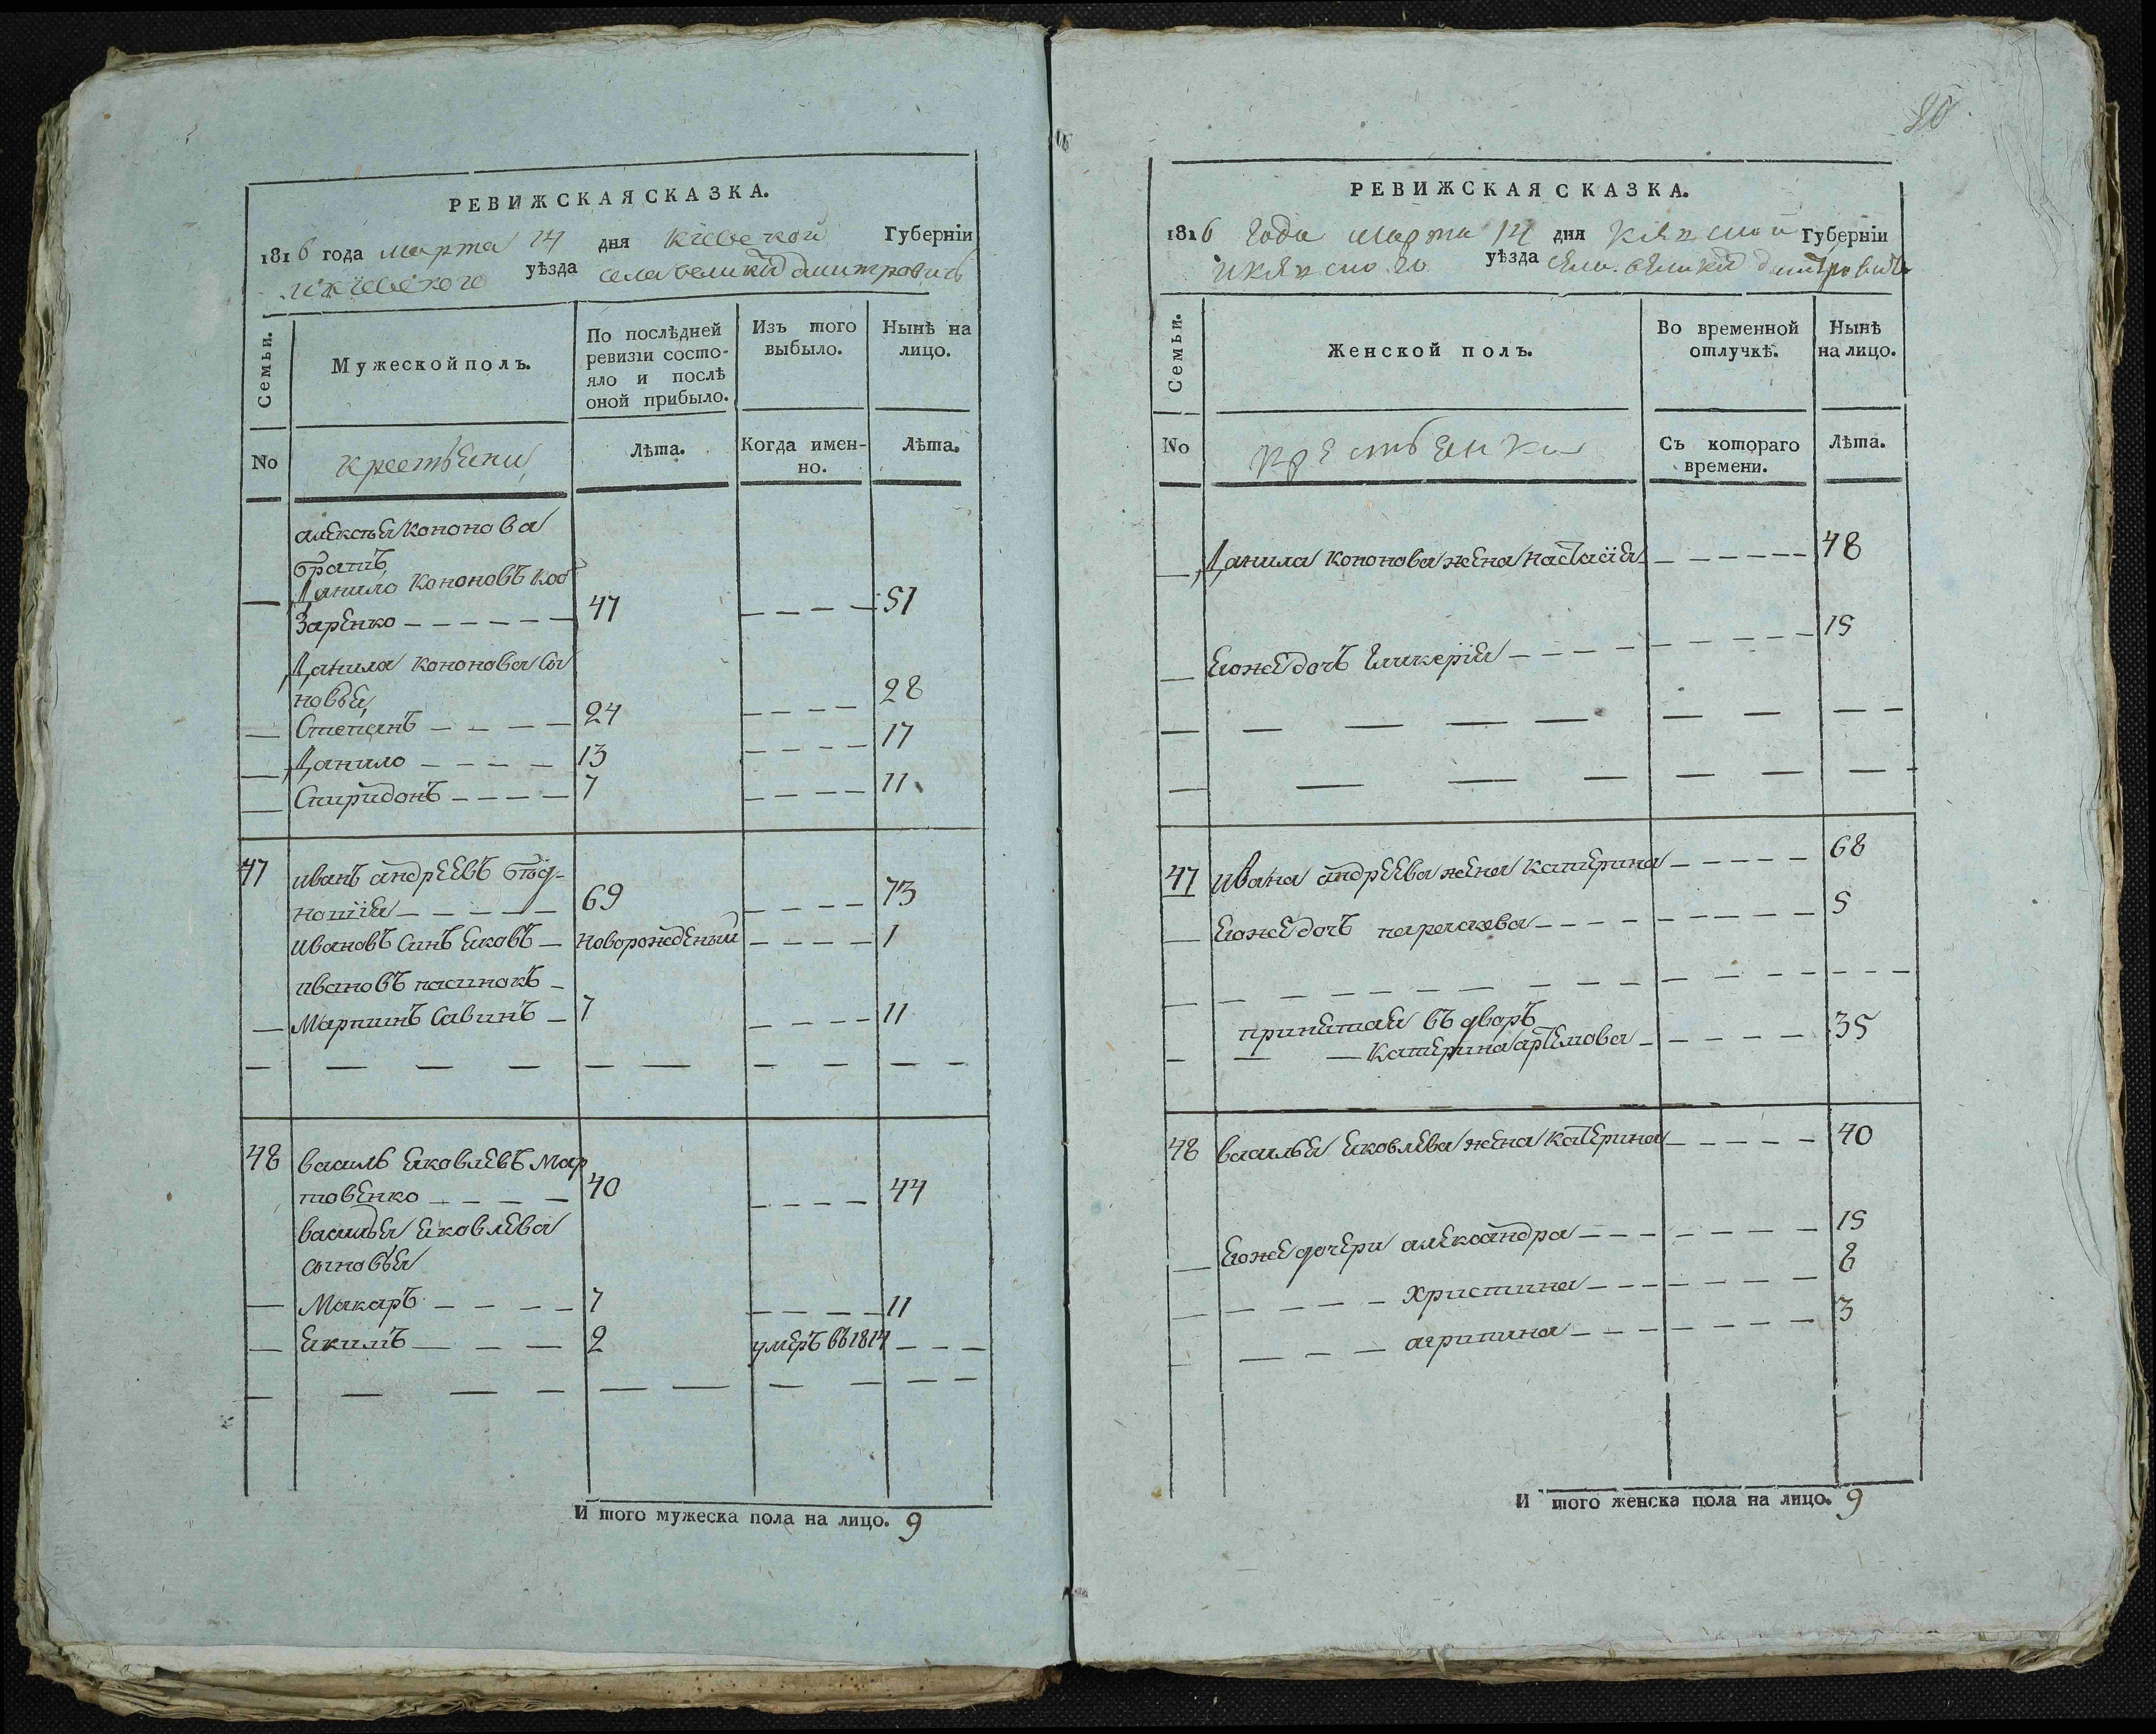 РЕВИЖСКАЯ СКАЗКА.
1816 года марта 14 дня Киевской Губерніи
и Киевского уѣзда села великихъ дмитровичь
Семьи.
Мужеской полъ.
По послѣдней ревизіи состояло и послѣ оной прибыло.
Изъ того выбыло.
Нынѣ на лицо.
No
крестьяни
Лѣта.
Когда именно.
Лѣта.
алексѣя кононова
братъ
— Данило кононовъ коб
заренко — — — — — 47 — — — — 51
Данила кононова си
новья
— Степанъ — — — — 24 — — — — 28
— Данило — — — — 13 — — — — 17
— Спиридонъ — — — — 7 — — — — 11
47 иванъ андрѣевъ
— — — — — 69 — — — — 73
ивановъ синъ яковъ — новорожденый — — — — 1
ивановъ пасинокъ —
— Мартинъ Савинъ — 7 — — — — 11
— — — — — — — — — —
48 василь яковлевъ мар
товенко — — — — 40 — — — — 44
василья яковлева
сыновья
— Макаръ — — — — 7 — — — — 11
— якимъ — — — 2 умеръ въ 1814 — — —
— — — — — — — — — —
И того мужеска пола на лицо. 9
80
РЕВИЖСКАЯ СКАЗКА.
1816 года марта 14 дня Киевской Губерніи
и Киевского уѣзда села великихъ дмитровичь
Семьи.
Женской полъ.
Во временной отлучкѣ.
Нынѣ на лицо.
No
крестьянки
Съ котораго времени.
Лѣта.
— Данила кононова жена настасія — — — — — 48
— еяже дочъ гликерія — — — — — — — — 15
— — — — — — — — —
— — — — — — — —
47 ивана андрѣева жена катерина — — — — — 68
— еяже дочъ параскева — — — — — — — — — 5
— — — — — — — — — — — — — —
принятая въ дворъ
— — — катерина артемова — — — — — 35
48 василья яковлева жена катерина — — — — — 40
— еяже дочери александра — — — — — — — — 15
— — — — — христина — — — — — — — 8
— — — — агрипина — — — — — — — 3
И того женска пола на лицо. 9